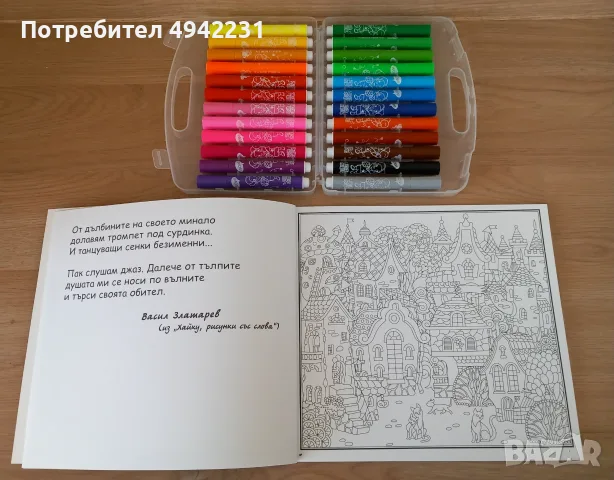 Потребител 4942231
От дълбините на своето минало
долавям тромпет под сурдинка.
И танцуващи сенки безименни...
Пак слушам джаз. Далече от тълпите
душата ми се носи по вълните
и търси своята обител.
Васил Златарев
(из „Хайку, рисунки със слова“)
BAZAR